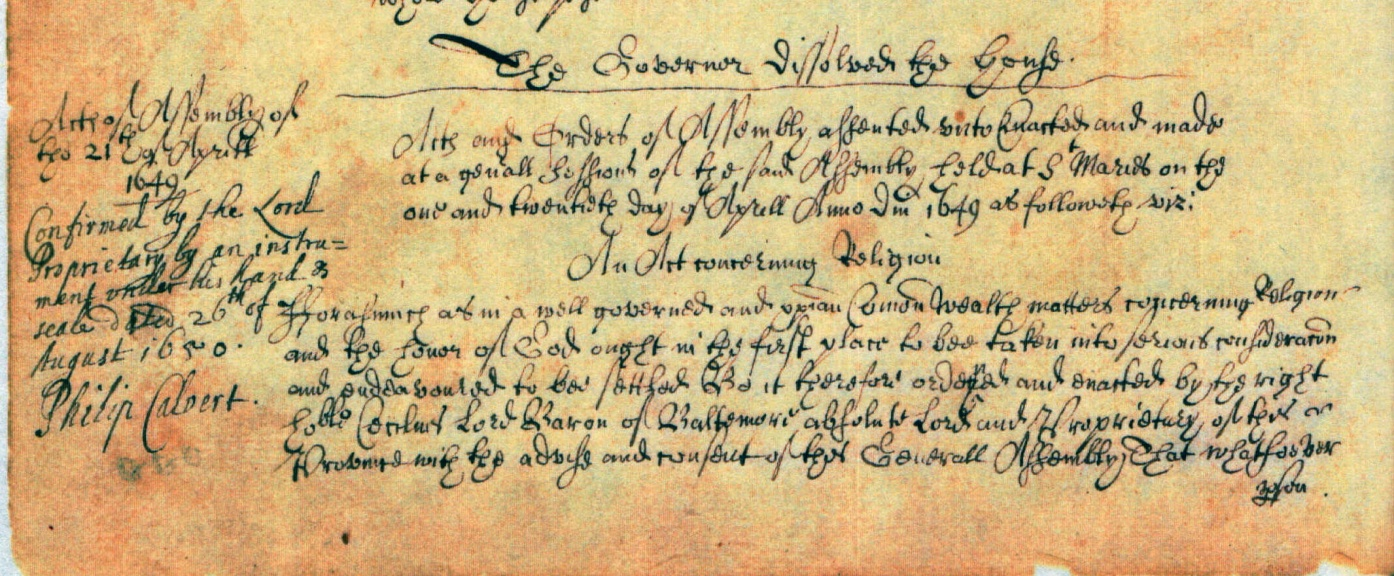 The Governor dissolved the house.
Acts of Assembly of
the 21th of Aprill
1649
Confirmed by the Lord
Proprietary by an instru=
ment under his hand &
seale dated 26th of
August 1650.
Philip Calvert.
Acts and Orders of Assembly assented vnto Enacted and made
at a genall Sessions of the said Assembly held at St Maries on the
one and twentieth day of Aprill Anno Dm 1649 as followeth viz:
An Act concerning Religion
fforasmuch as in a well governed and xpian Comon Wealth matters concerning Religion
and the honor of God ought in the first place to bee taken into serious consideracon
and endeavoured to bee settled Be it therefore ordered and enacted by the right
hoble Cecilius Lord Baron of Baltemore absolute Lord and Proprietary of this
Province with the advise and consent of this Generall Assembly That whatsoever
pson